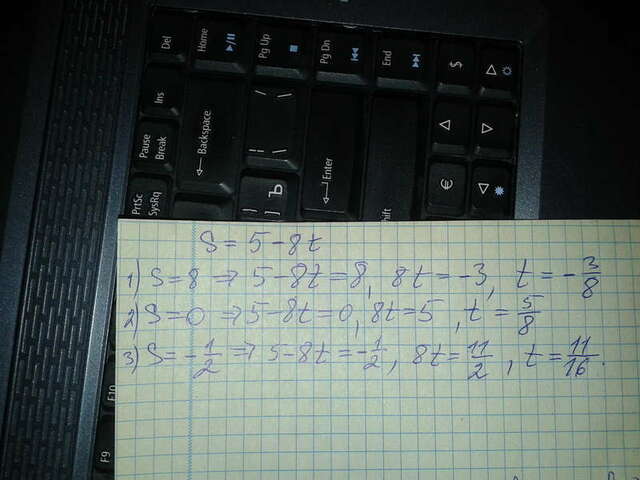 Del
Home
Pg Up
Pg Dn
End
$
Ins
Backspace
\
|
Pause
Break
Enter
€
PrtSc
SysRq
]
Ъ
Shift
S = 5 - 8t
1) S = 8 ⇒ 5 - 8t = 8, 8t = -3, t = -3/8
2) S = 0 ⇒ 5 - 8t = 0, 8t = 5, t = 5/8
3) S = -1/2 ⇒ 5 - 8t = -1/2, 8t = 11/2, t = 11/16.
F10
F9